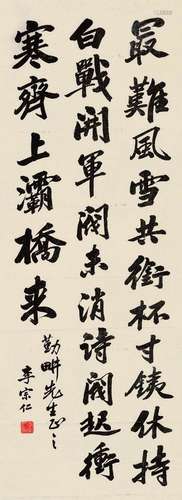 最難風雪共銜杯寸銕休持
白戰開軍閥未消詩閥起衝
寒齊上灞橋来
勤畊先生正之
李宗仁